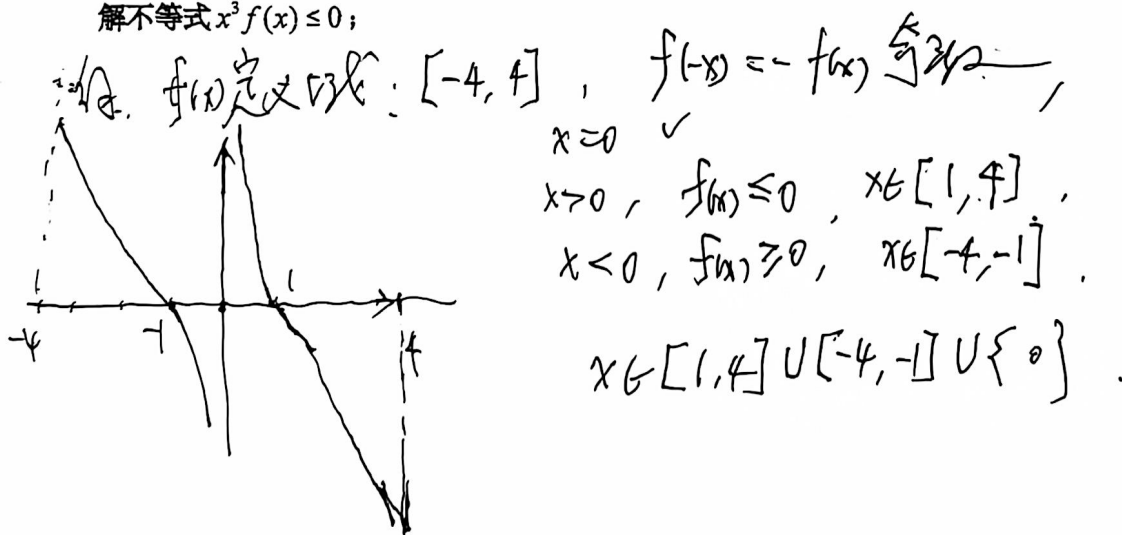 解不等式 x³f(x)≤0；
f(x)定义域：[-4, 4]， f(-x)=-f(x) 奇函数，
x=0 ✓
x>0， f(x)≤0， x∈[1,4].
x<0， f(x)≥0， x∈[-4,-1].
1
-4 -1 4
x∈[1,4]∪[-4,-1]∪{0}.